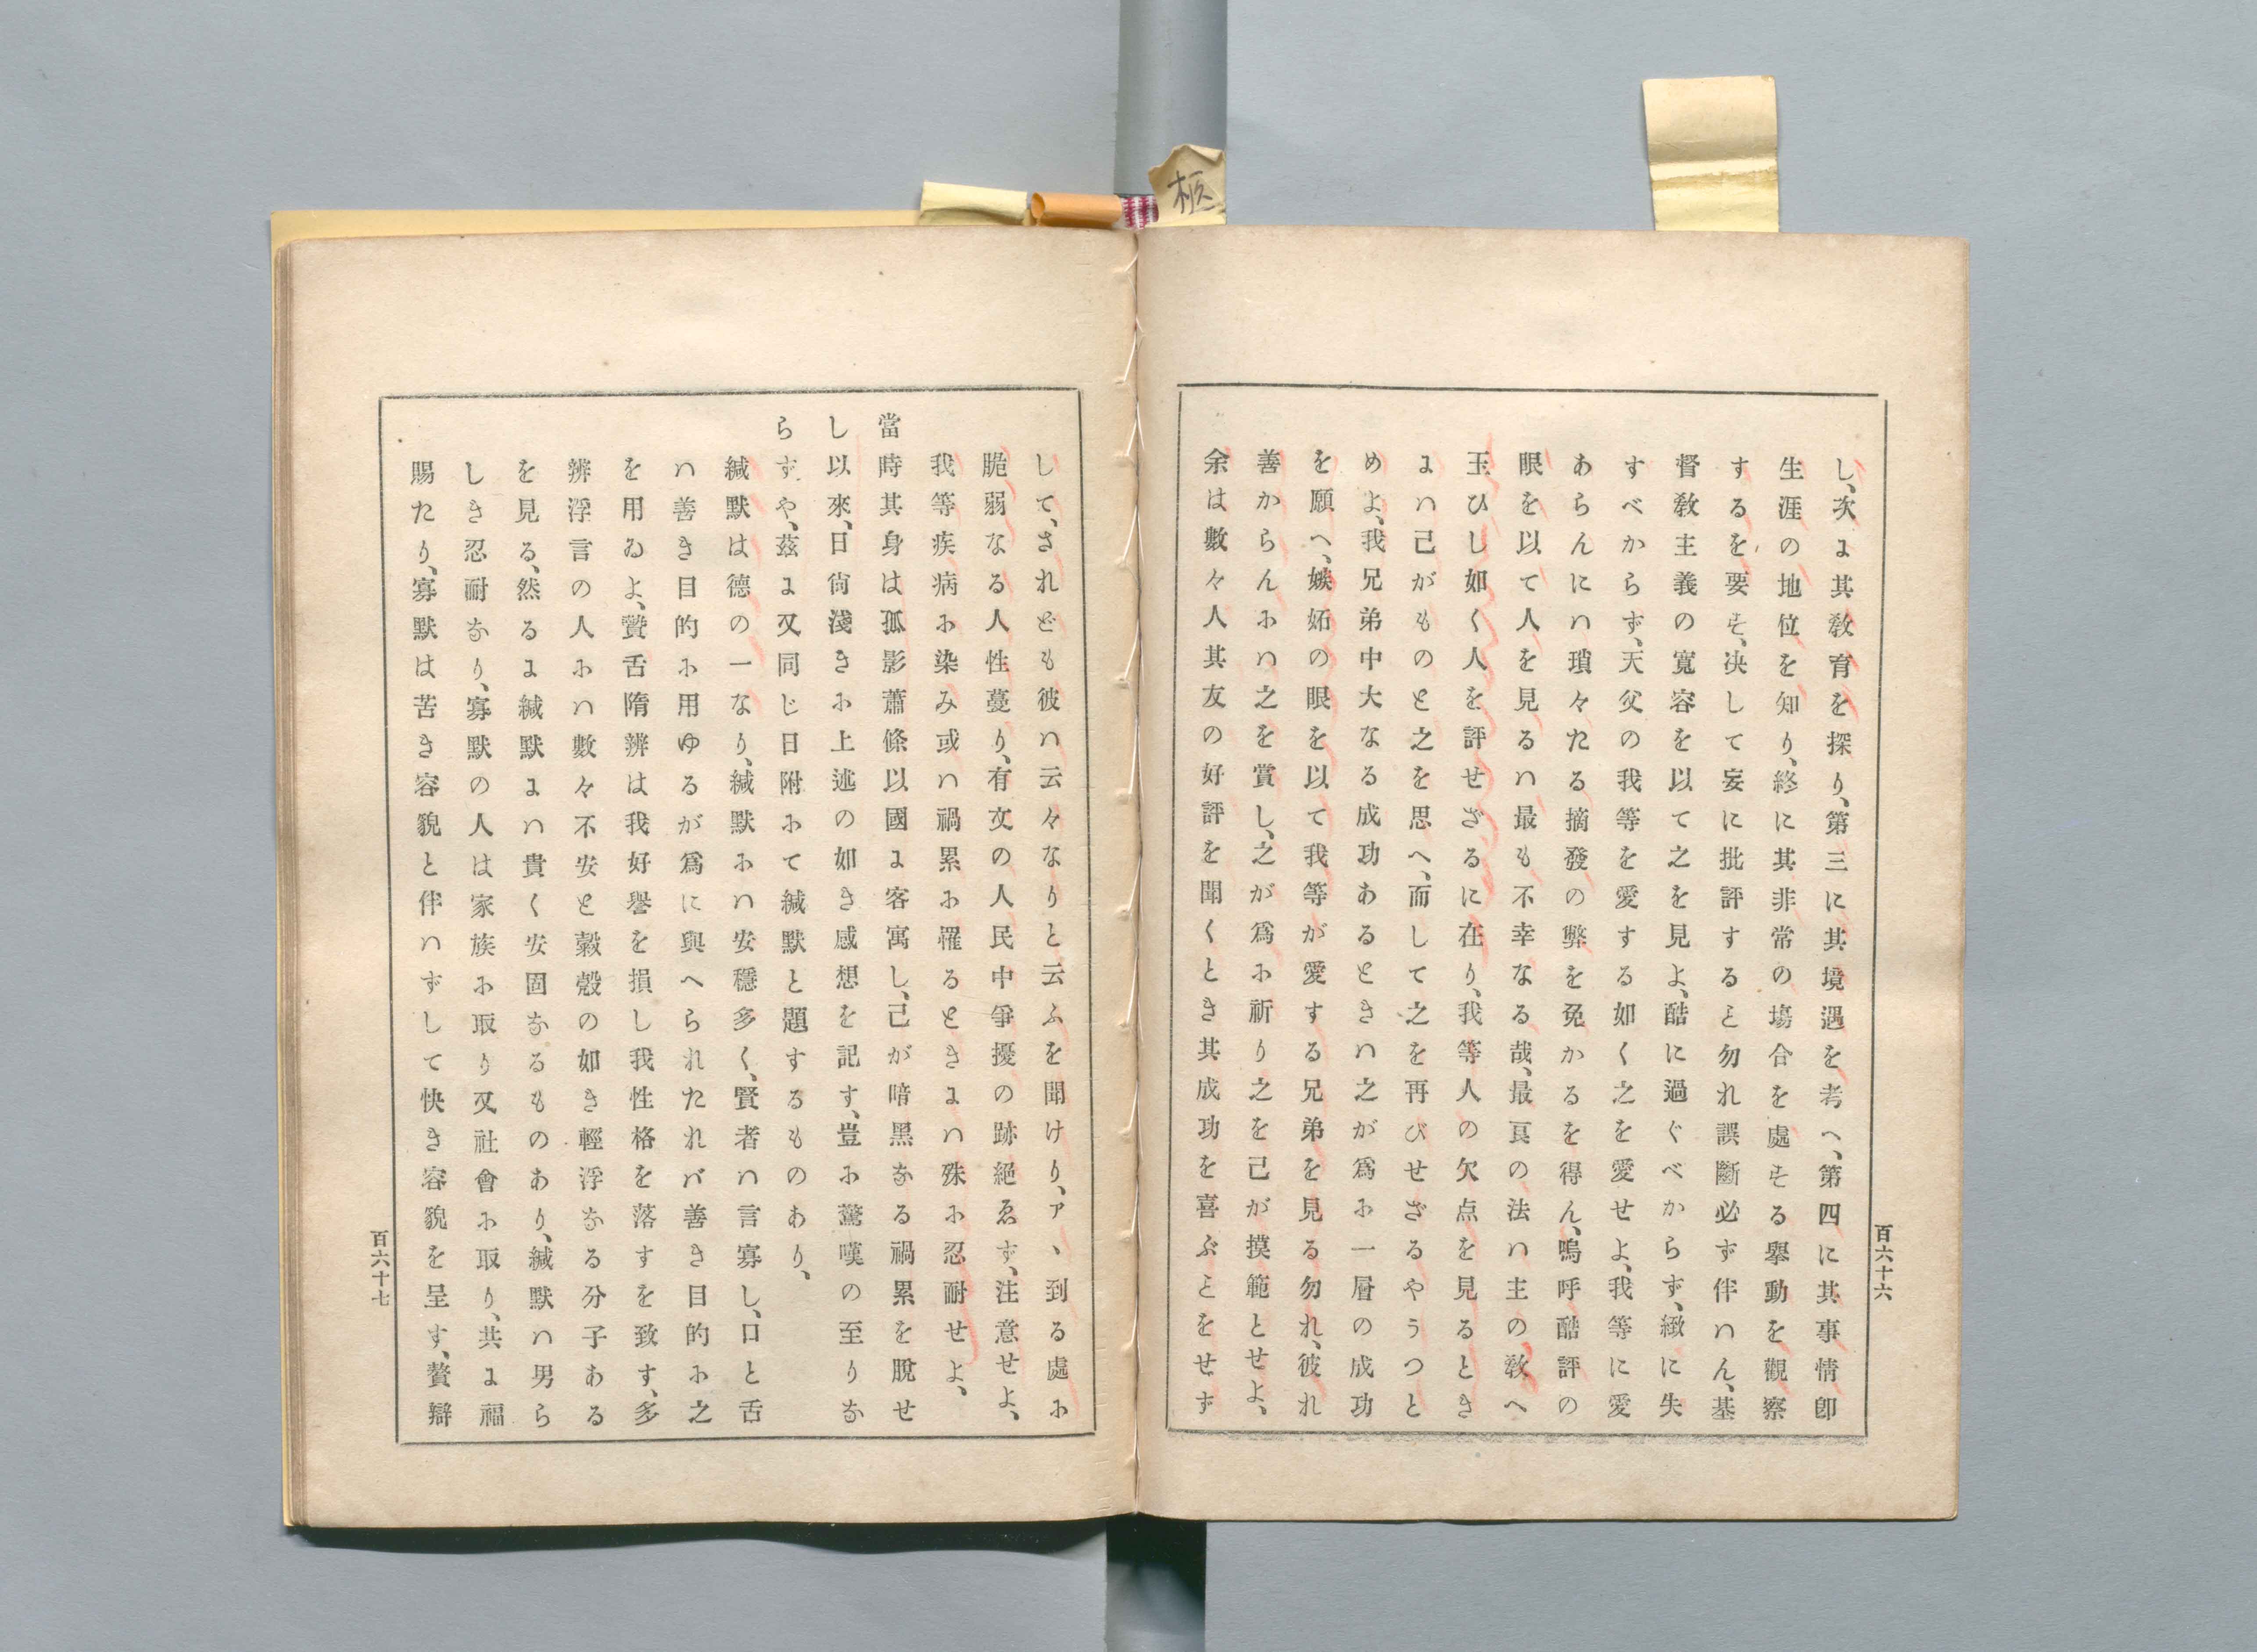 柩
し、次ﾆ其教育を探り、第三に其境遇を考へ、第四に其事情卽
生涯の地位を知り、終に其非常の塲合を處する擧動を觀察
するを要す、决して妄に批評すると勿れ誤斷必ず伴ハん、基
督教主義の寛容を以て之を見よ、酷に過ぐべからず、緻に失
すべからず、天父の我等を愛する如く之を愛せよ、我等に愛
あらんにハ瑣々たる摘發の弊を免かるを得ん、嗚呼酷評の
眼を以て人を見るハ最も不幸なる哉、最良の法ハ主の教へ
玉ひし如く人を評せざるに在り、我等人の欠点を見るとき
にハ己がものと之を思へ、而して之を再びせざるやうつと
めよ、我兄弟中大なる成功あるときハ之が爲に一層の成功
を願へ、嫉妬の眼を以て我等が愛する兄弟を見る勿れ、彼れ
善からんにハ之を賞し、之が爲に祈り之を己が摸範とせよ、
余は數々人其友の好評を聞くとき其成功を喜ぶとをせず
百六十六
して、されども彼ハ云々なりと云ふを聞けり、ア、到る處に
脆弱なる人性蔓り、有文の人民中爭擾の跡絕ゑず、注意せよ、
我等疾病に染み或ハ禍累に罹るときにハ殊に忍耐せよ、
當時其身は孤影蕭條以國に客寓し、己が暗黑なる禍累を脫せ
し以來、日尙淺きに上述の如き感想を記す、豈に驚嘆の至りな
らずや、茲に又同じ日附にて緘默と題するものあり、
緘默は德の一なり、緘默にハ安穩多く、賢者ハ言寡し、口と舌
ハ善き目的に用ゆるが爲に與へられたれバ善き目的に之
を用ゐよ、贊舌隋辨は我好譽を損し我性格を落すを致す、多
辨浮言の人にハ數々不安と穀殼の如き輕浮なる分子ある
を見る、然るに緘默にハ貴く安固なるものあり、緘默ハ男ら
しき忍耐なり、寡默の人は家族に取り又社會に取り、共に福
賜たり、寡默は苦き容貌と伴ハずして快き容貌を呈す、贅辯
百六十七